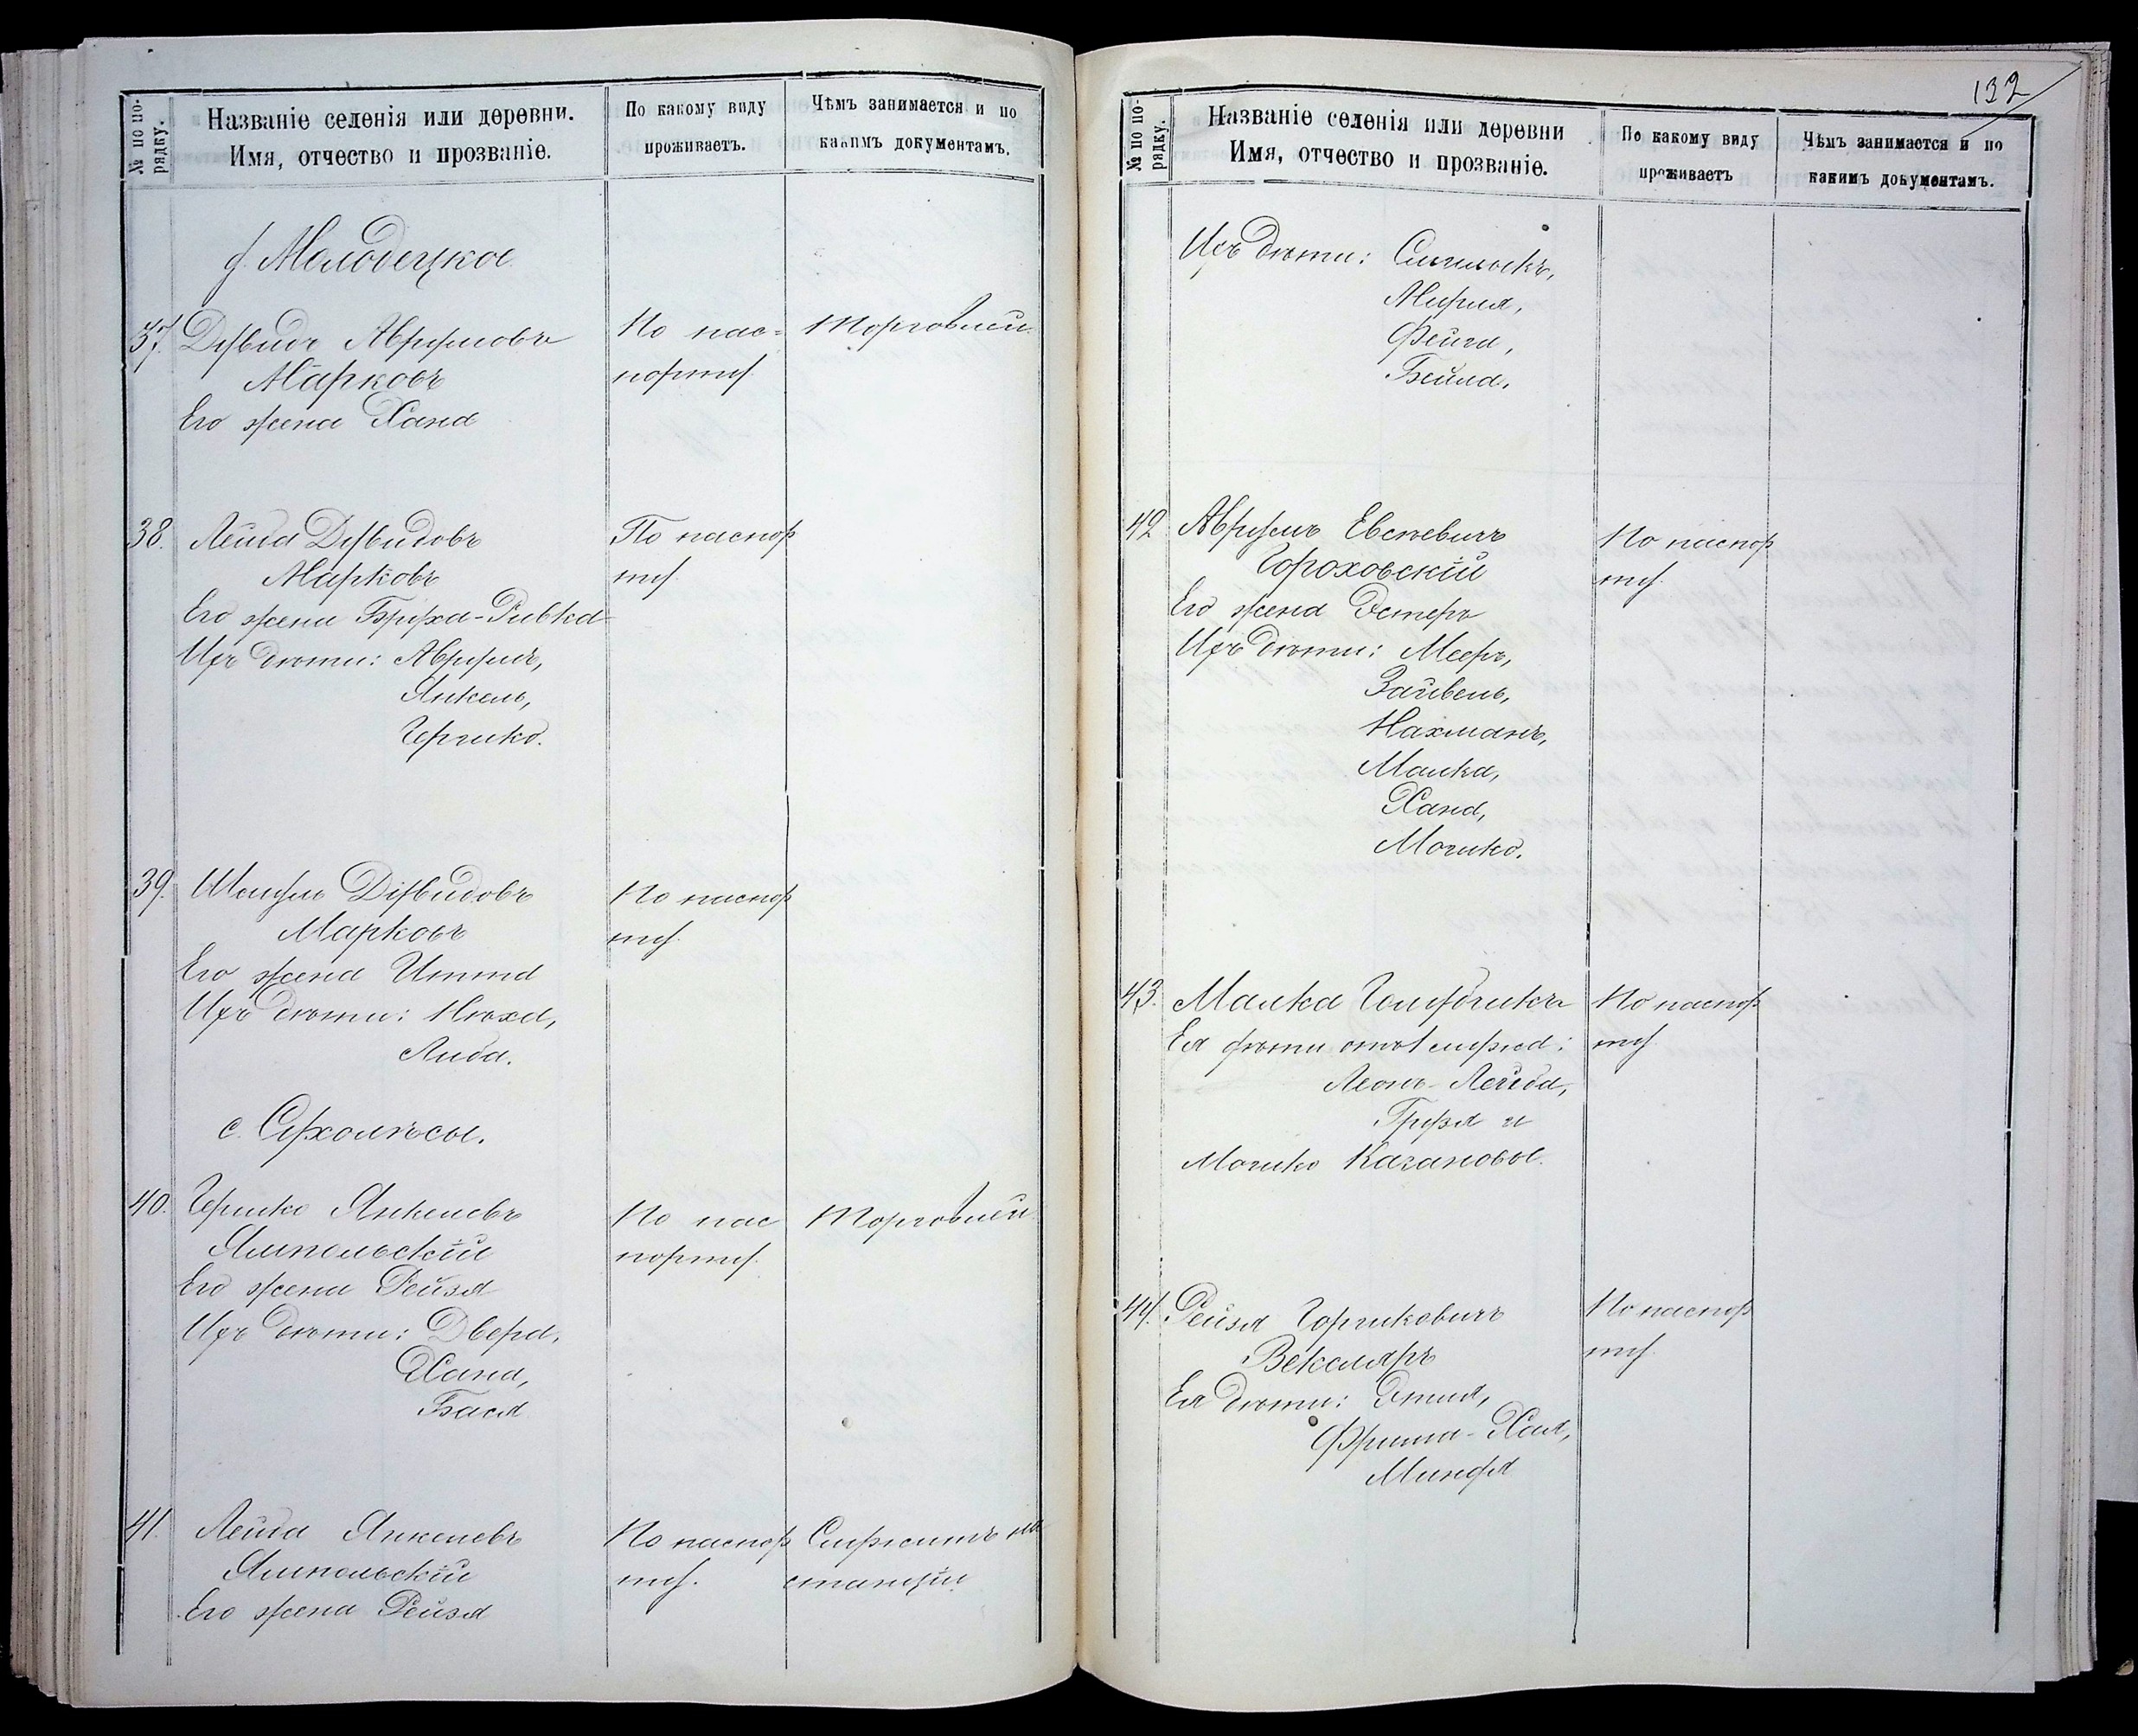 № по по-
рядку.
Названіе селенія или деревни.
Имя, отчество и прозваніе.
По какому виду
проживаетъ.
Чѣмъ занимается и по
какимъ документамъ.
д. Молодецкое
37. Дувидъ Аврумовъ
Марковъ
Его жена Хана
По пас-
порту.
Торговлей.
38. Лейба Дувидовъ
Марковъ
Его жена Бруха-Ривка
Ихъ дѣти: Аврумъ,
Янкель,
Гершко.
По паспор
ту.
39. Шмуль Дувидовъ
Марковъ
Его жена Итта
Ихъ дѣти: Нюха,
Либа.
По паспор
ту.
с. Сухолѣсы.
40. Гершко Янкелевъ
Ямпольскій
Его жена Рейзя
Ихъ дѣти: Двера,
Хана,
Бася
По пас
порту.
Торговлей
41. Лейба Янкелевъ
Ямпольскій
Его жена Рейзя
По паспор
ту.
Служитъ на
станціи
132
№ по по-
рядку.
Названіе селенія или деревни
Имя, отчество и прозваніе.
По какому виду
проживаетъ
Чѣмъ занимается и по
какимъ документамъ.
Ихъ дѣти:
Мирля,
Фейга,
Бейла.
42 Аврумъ Евсѣевичъ
Гороховскій
Его жена Эстеръ
Ихъ дѣти: Мееръ,
Зайвель,
Нахманъ,
Малка,
Хана,
Мошко.
По паспор
ту.
43. Малка
Ея дѣти отъ 1 мужа:
Леонъ-Лейба,
Грузя и
Мошко Кагановы.
По паспор
ту.
44. Рейзя Гершковичъ
Векслеръ
Ея дѣти: Этля,
Фрима-Хая,
Миндя
По паспор
ту.